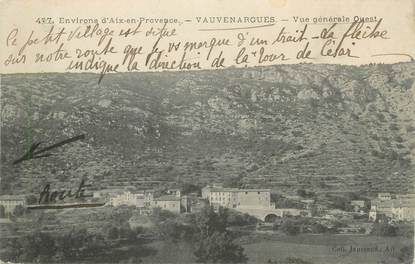 427. Environs d'Aix-en-Provence. - VAUVENARGUES. - Vue générale Ouest
Ce petit village est situé
sur notre route que je vs marque d'un trait - La flèche
indique la direction de la tour de César
Route
Coll. , Aix